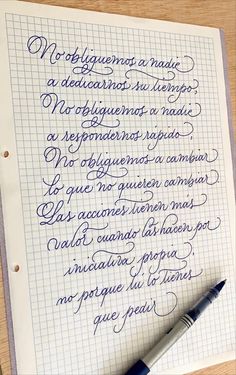 No obliguemos a nadie
a dedicarnos su tiempo.
No obliguemos a nadie
a respondernos rápido,
No obliguemos a cambiar
lo que no quieren cambiar.
Las acciones tienen mas
valor cuando las hacen por
iniciativa propia,
no porque tú lo tienes
que pedir